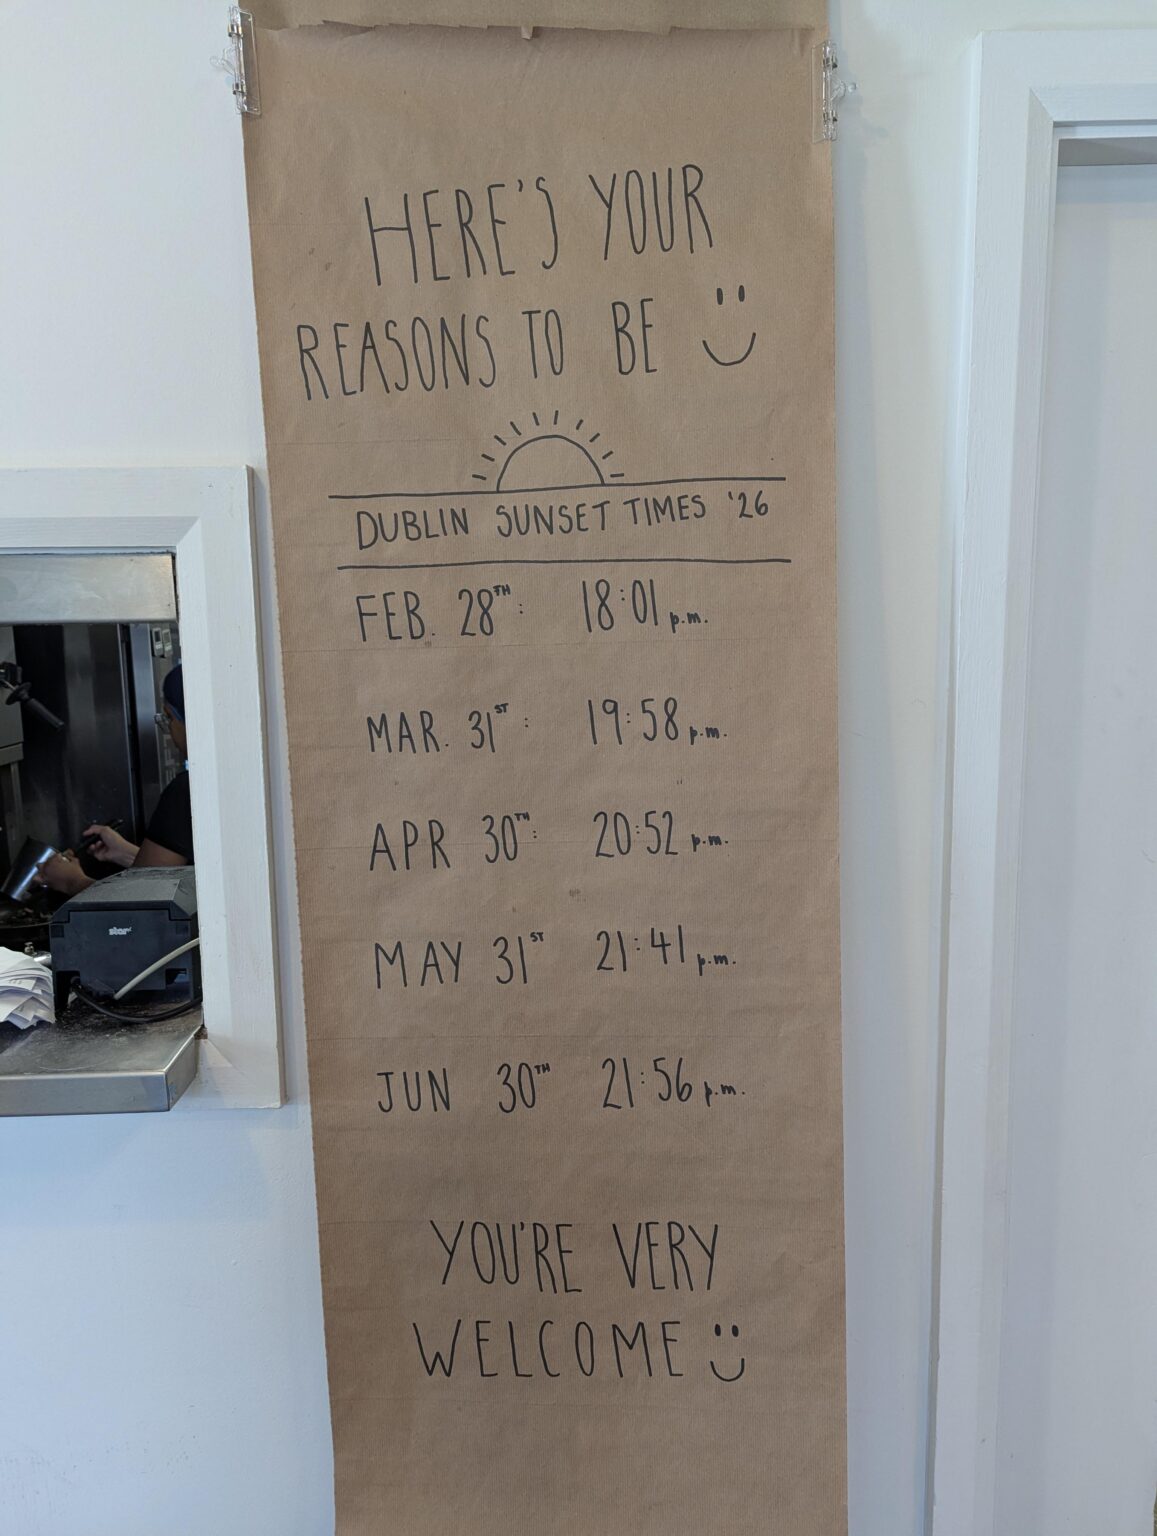 HERE'S YOUR
REASONS TO BE
DUBLIN SUNSET TIMES '26
FEB. 28TH: 18:01 p.m.
MAR. 31ST: 19:58 p.m.
APR 30TH: 20:52 p.m.
MAY 31ST 21:41 p.m.
JUN 30TH 21:56 p.m.
YOU'RE VERY
WELCOME
star